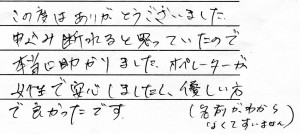 この度はありがとうございました.
申し込み断れると思っていたので
本当に助かりました. オペレーターが
女性で安心しましたし、優しい方
で良かったです.
(名前がわから
なくてすいません)